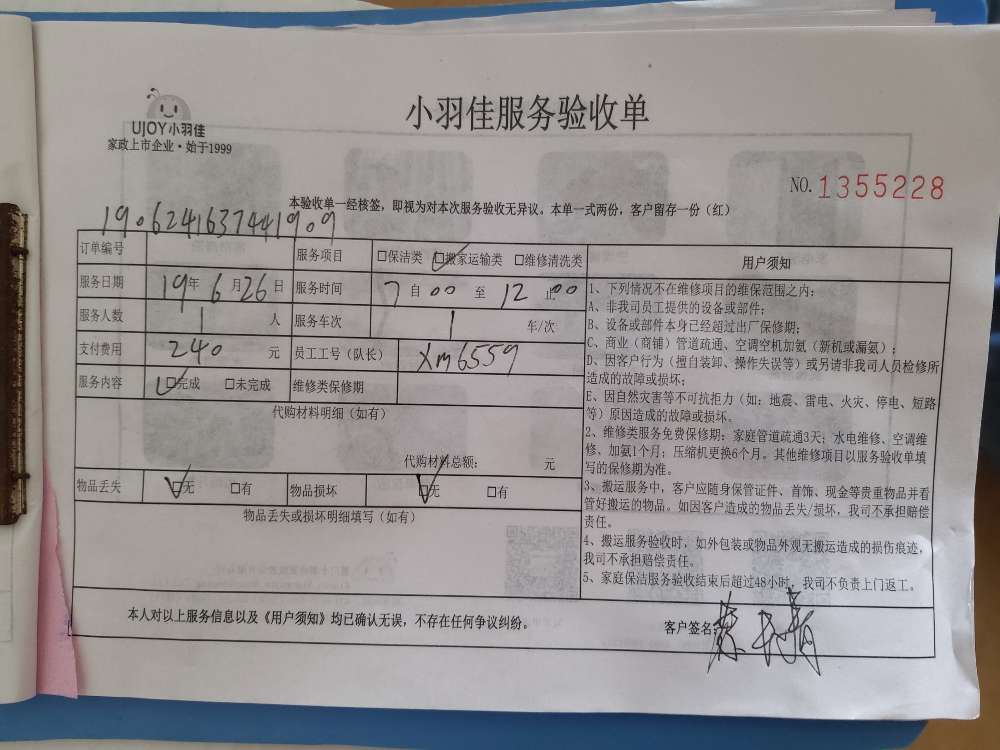 UJOY小羽佳
家政上市企业·始于1999
小羽佳服务验收单
NO.1355228
本验收单一经核签，即视为对本次服务验收无异议。本单一式两份，客户留存一份（红）
1906241637441909
订单编号 服务项目 □保洁类 □搬家运输类 □维修清洗类
服务日期 19年 6月26日 服务时间 7自00至12止00
服务人数 1人 服务车次 1车/次
支付费用 240元 员工工号（队长） Xm6559
服务内容 □完成 □未完成 维修类保修期
代购材料明细（如有）
代购材料总额： 元
物品丢失 □无 □有 物品损坏 □无 □有
物品丢失或损坏明细填写（如有）
用户须知
1、下列情况不在维修项目的维保范围之内：
A、非我司员工提供的设备或部件；
B、设备或部件本身已经超过出厂保修期；
C、商业（商铺）管道疏通、空调空机加氨（新机或漏氨）；
D、因客户行为（擅自装卸、操作失误等）或另请非我司人员检修所
造成的故障或损坏；
E、因自然灾害等不可抗拒力（如：地震、雷电、火灾、停电、短路
等）原因造成的故障或损坏。
2、维修类服务免费保修期：家庭管道疏通3天；水电维修、空调维
修、加氨1个月；压缩机更换6个月。其他维修项目以服务验收单填
写的保修期为准。
3、搬运服务中，客户应随身保管证件、首饰、现金等贵重物品并看
管好搬运的物品。如因客户造成的物品丢失/损坏，我司不承担赔偿
责任。
4、搬运服务验收时，如外包装或物品外观无搬运造成的损伤痕迹，
我司不承担赔偿责任。
5、家庭保洁服务验收结束后超过48小时，我司不负责上门返工。
本人对以上服务信息以及《用户须知》均已确认无误，不存在任何争议纠纷。
客户签名：